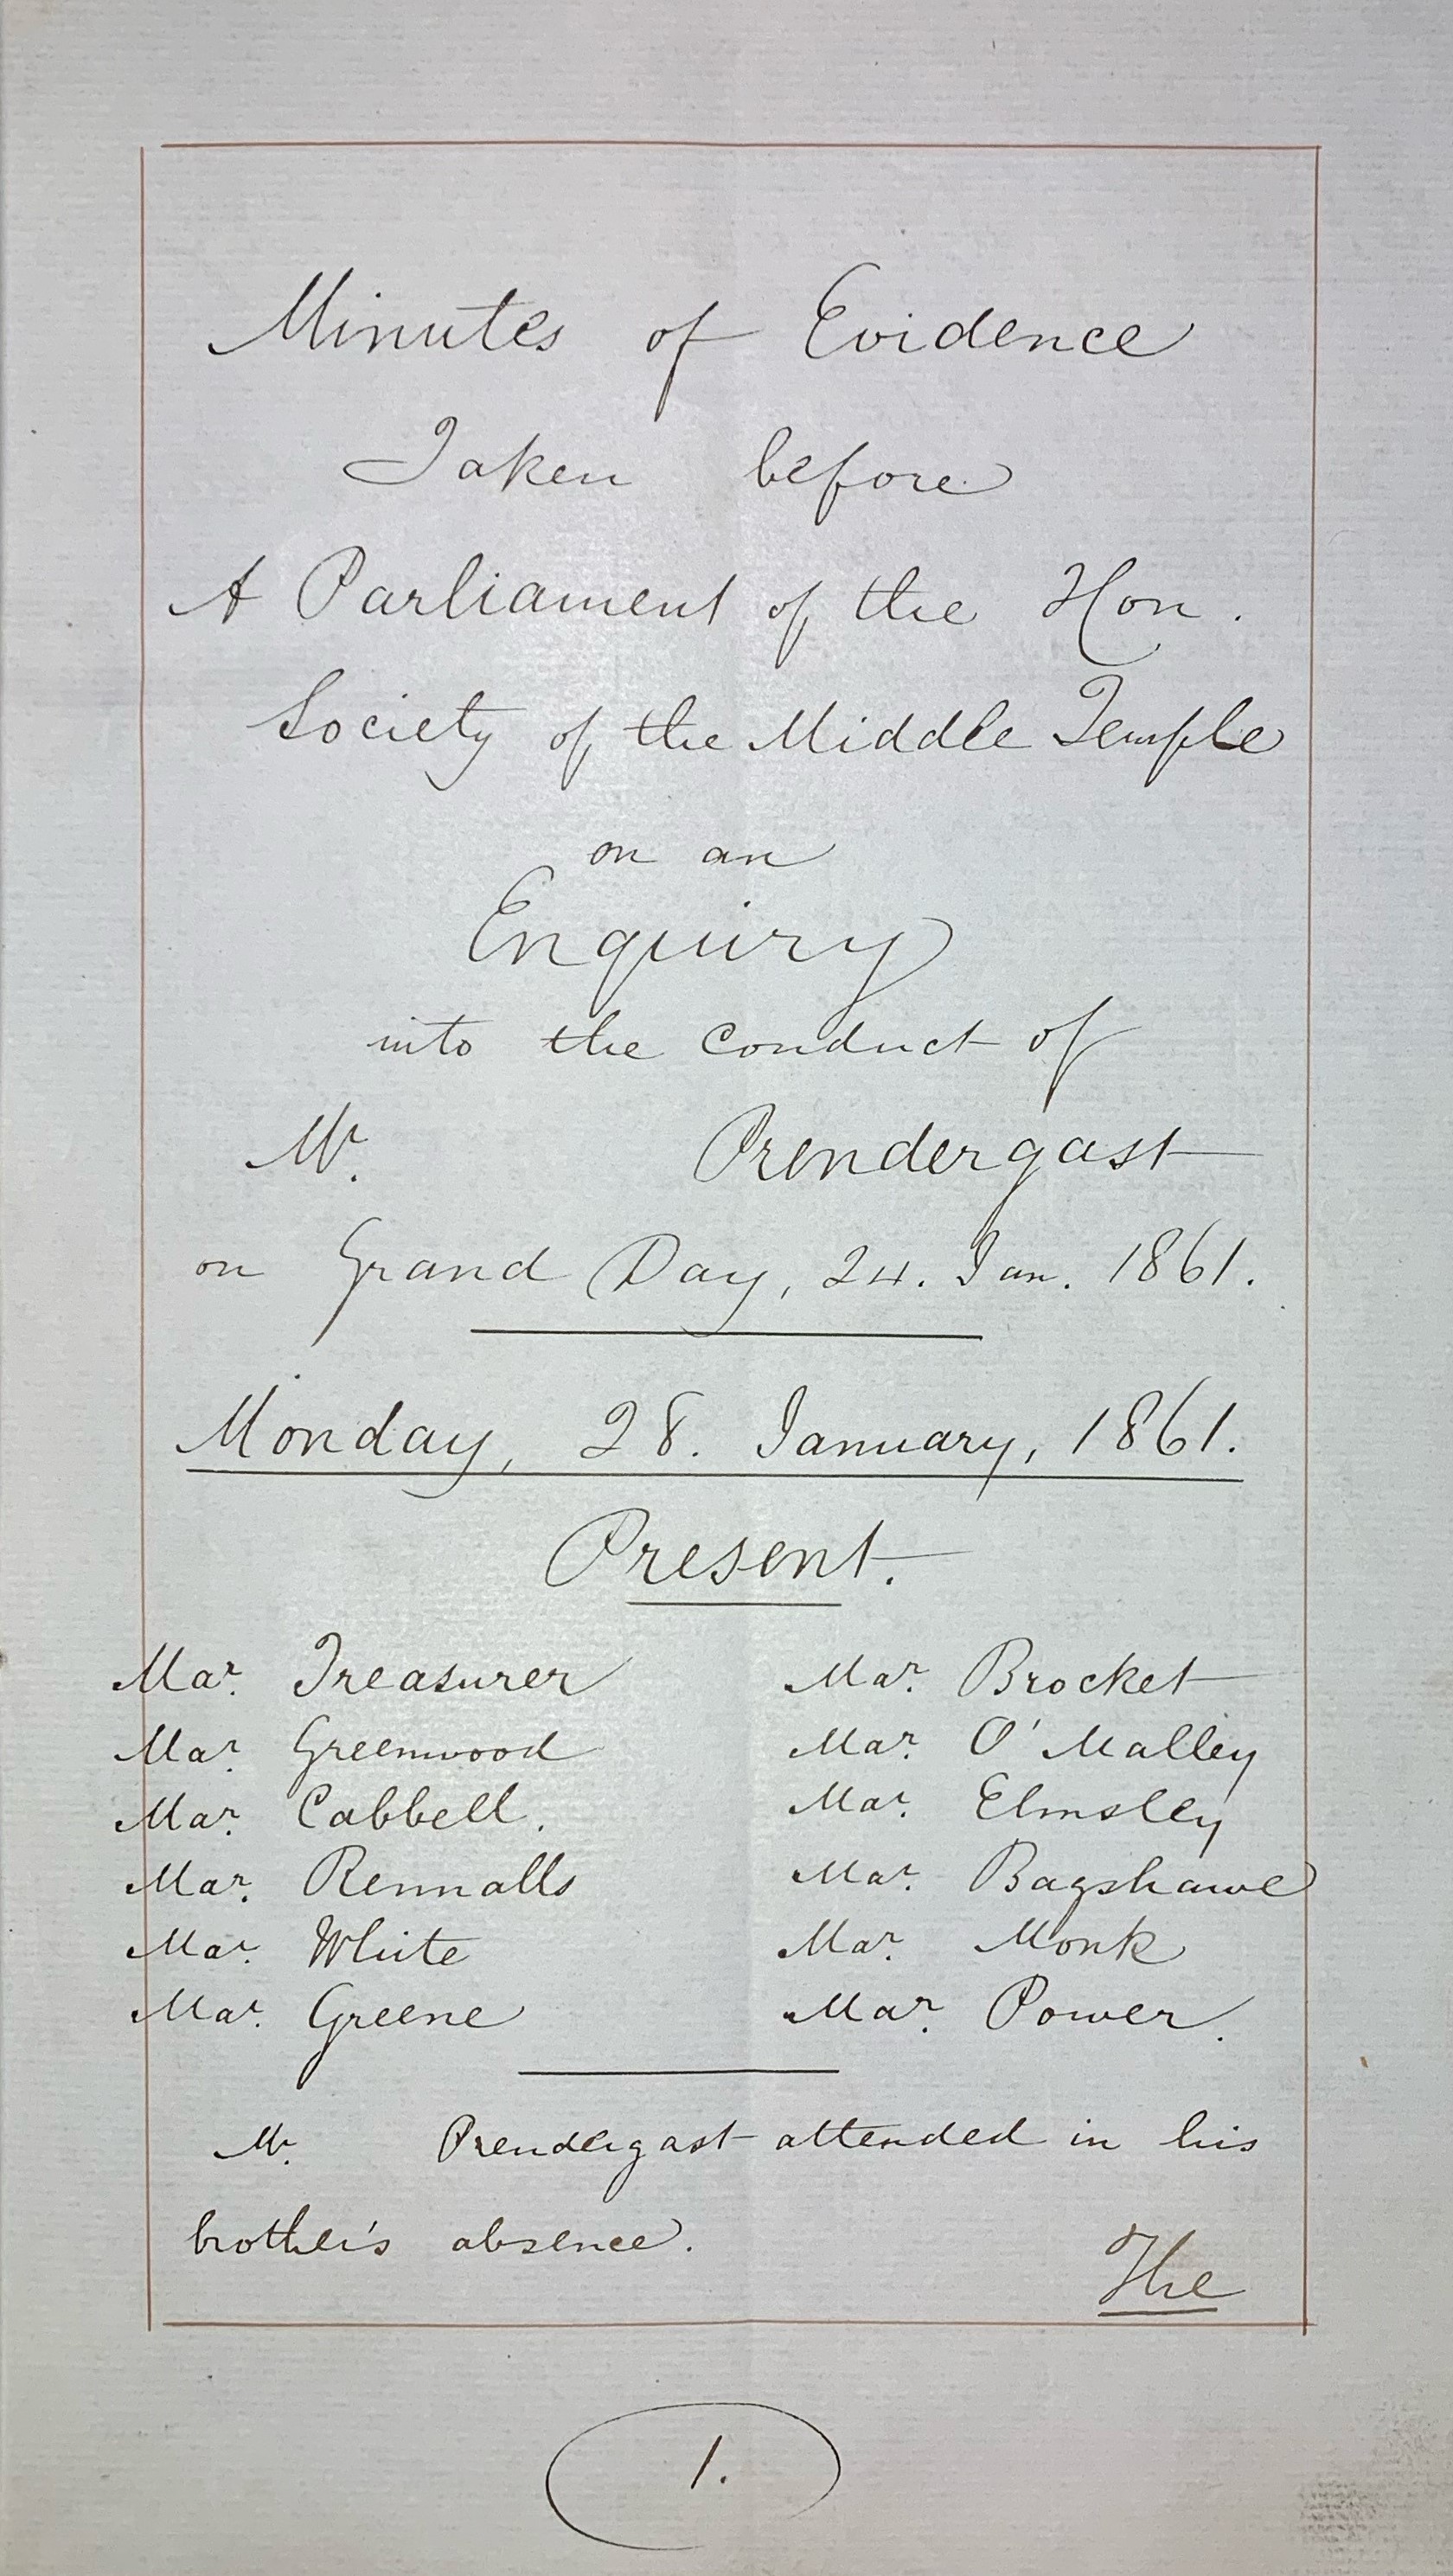 Minutes of Evidence
Taken before
A Parliament of the Hon.
Society of the Middle Temple
on an
Enquiry
into the conduct of
Mr. Prendergast
on Grand Day, 24. Jan. 1861.
Monday, 28. January, 1861.
Present.
Mar. Treasurer Mar. Brocket
Mar. Greenwood Mar. O'Malley
Mar. Cabbell. Mar. Elmsley
Mar. Rennalls Mar. Bagshawe
Mar. White Mar. Monk
Mar. Greene Mar. Power.
Mr. Prendergast attended in his
brother's absence.
The
1.